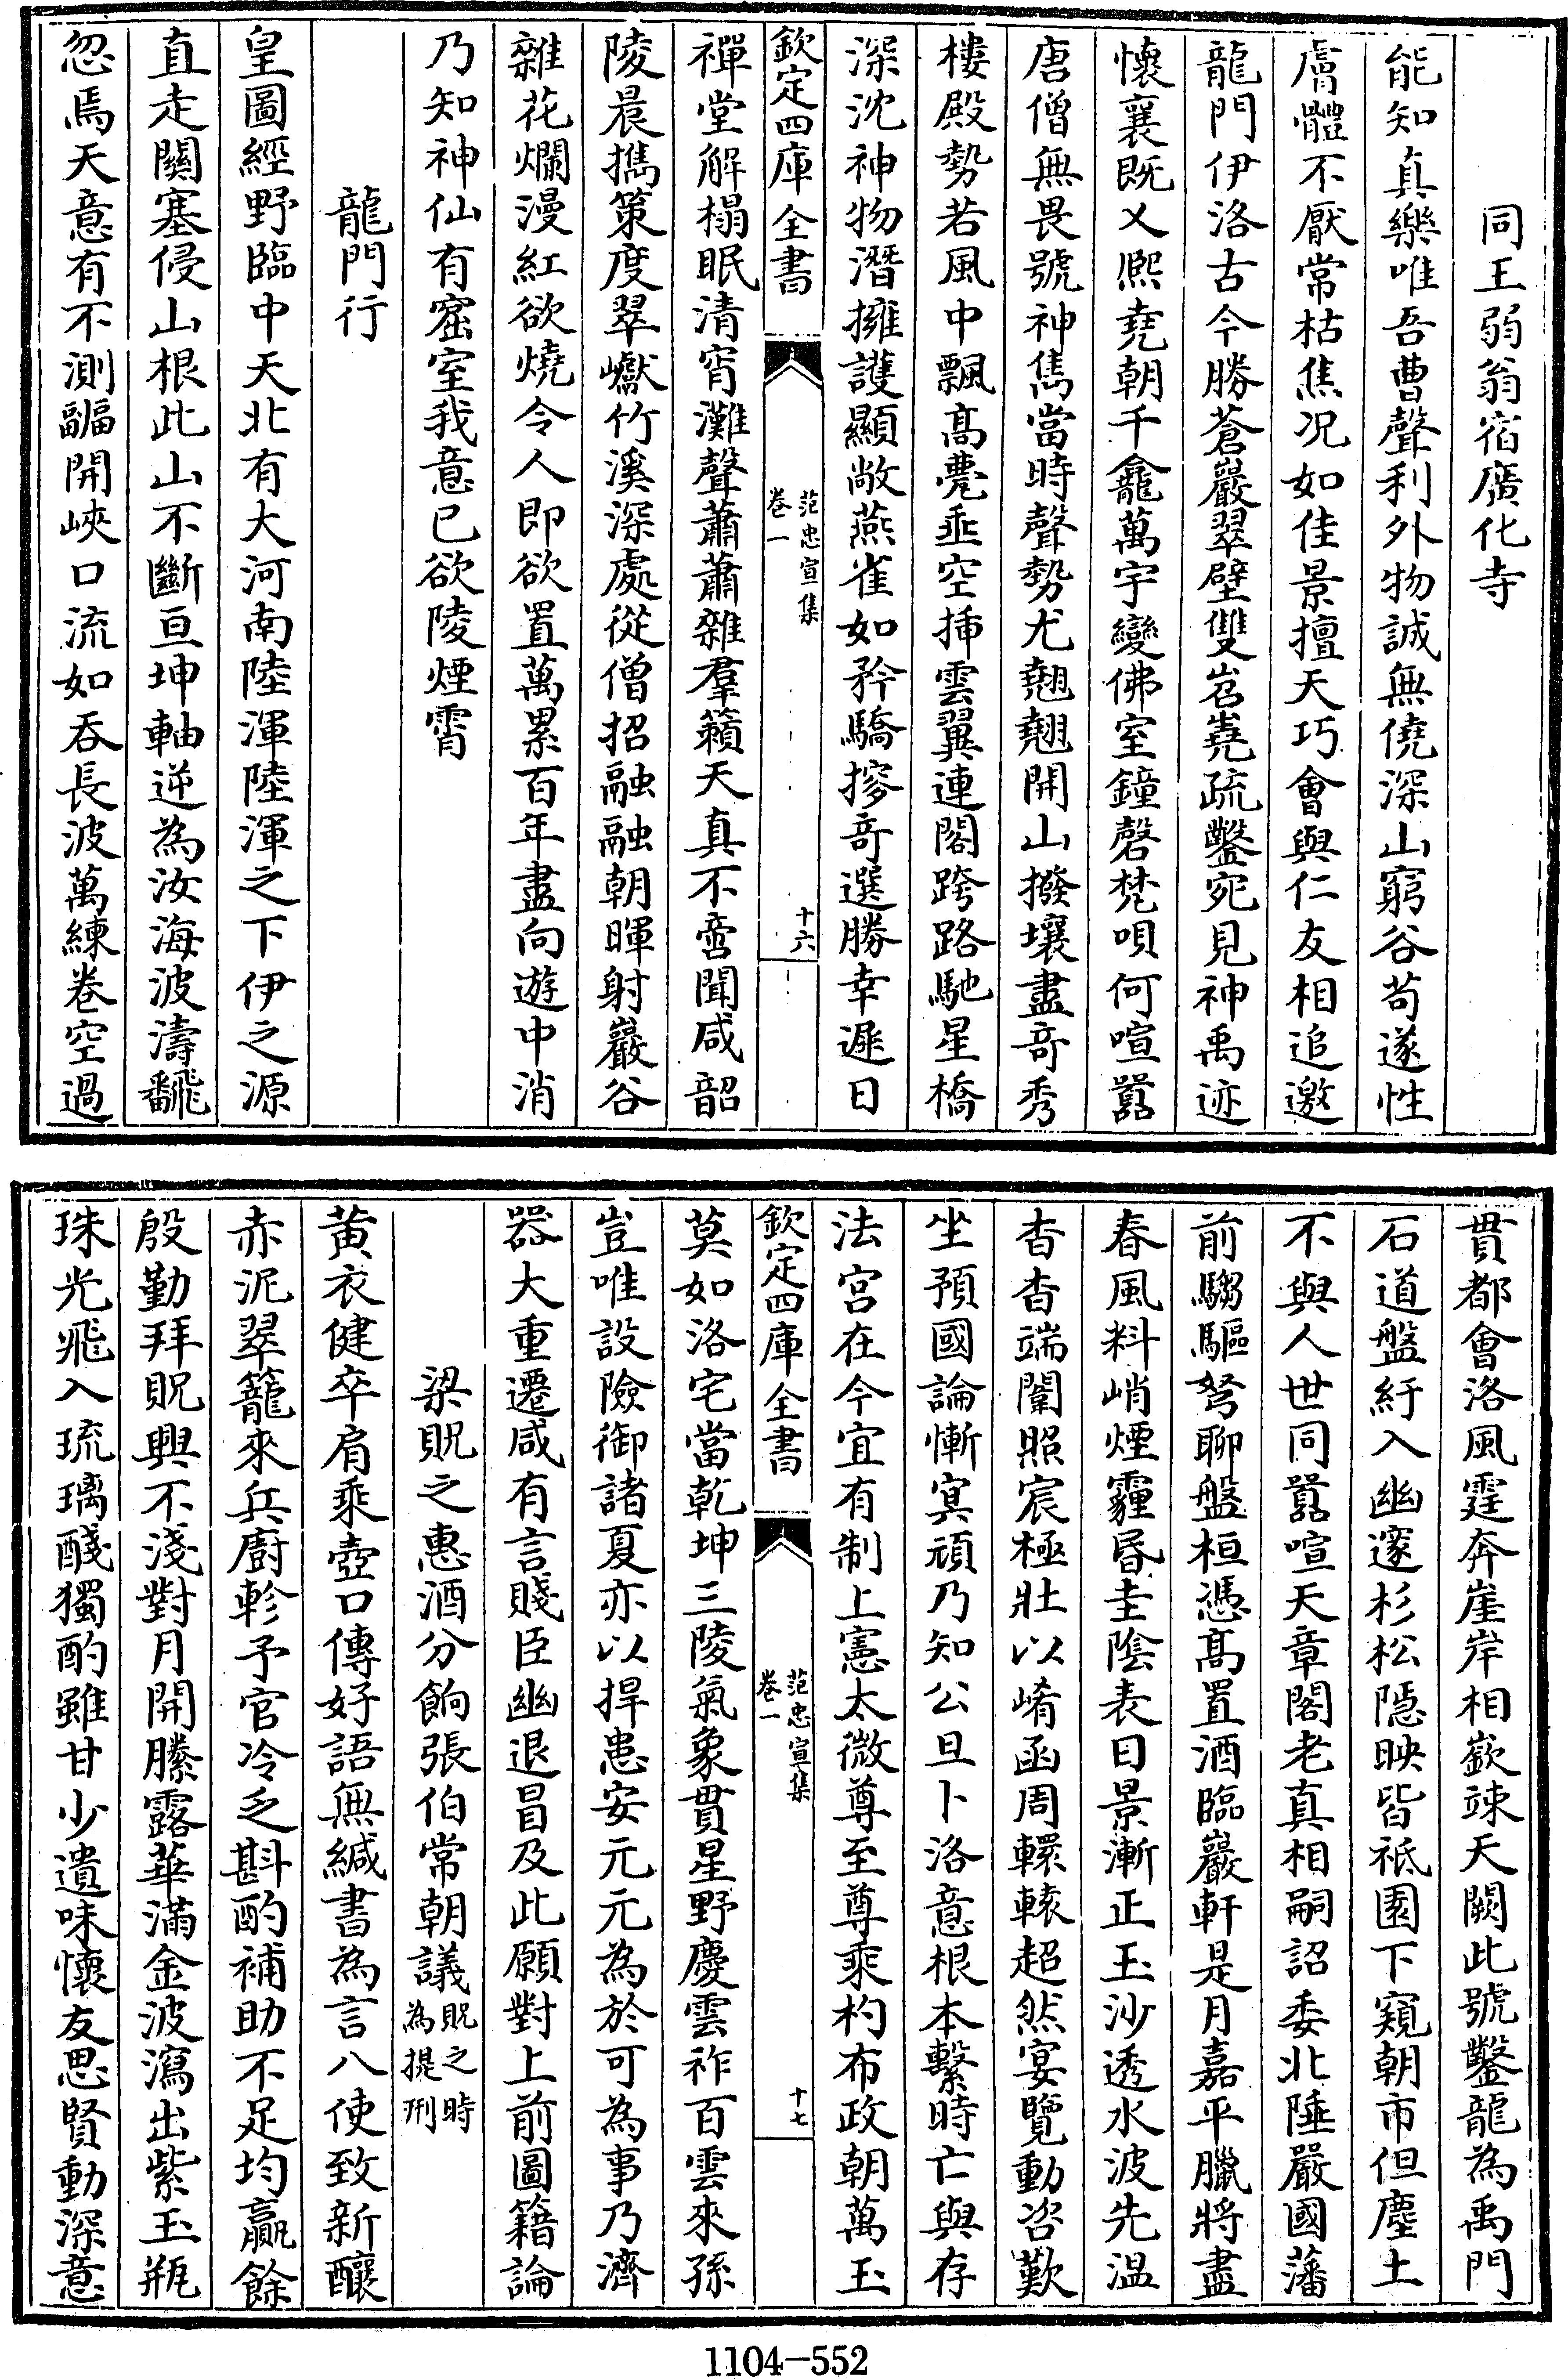 同王弱翁宿廣化寺
能知真樂唯吾曹聲利外物誠無僥深山窮谷苟遂性
膚體不厭常枯焦况如佳景擅天巧會與仁友相追邀
龍門伊洛古今勝蒼巖翠壁雙岧嶤疏鑿宛見神禹迹
懷襄既乂熈堯朝千龕萬宇變佛室鐘磬梵唄何喧囂
唐僧無畏號神雋當時聲勢尤翹翹開山撥壤盡奇秀
樓殿勢若風中飄髙甍垂空挿雲翼連閣跨路馳星橋
深沈神物潛擁護顯敞燕雀如矜驕搜奇選勝幸遲日
欽定四庫全書
范忠宣集
卷一
十六
禪堂解榻眠清宵灘聲蕭蕭雜羣籟天真不啻聞咸韶
陵晨擕策度翠巘竹溪深處從僧招融融朝暉射巖谷
雜花爛漫紅欲燒令人即欲置萬累百年盡向遊中消
乃知神仙有窟室我意已欲陵煙霄
龍門行
皇圖經野臨中天北有大河南陸渾陸渾之下伊之源
直走闕塞侵山根此山不斷亘坤軸逆為汝海波濤飜
忽焉天意有不測疈開峽口流如吞長波萬練卷空過
貫都會洛風霆奔崖岸相嶔竦天闕此號鑿龍為禹門
石道盤紆入幽邃杉松隠映皆祗園下窺朝市但塵土
不與人世同囂喧天章閣老真相嗣詔委北陲嚴國藩
前騶驅弩聊盤桓憑髙置酒臨巖軒是月嘉平臘將盡
春風料峭煙霾昬圭陰表日景漸正玉沙透水波先温
杳杳端闈照宸極壯以崤函周轘轅超然宴覽動咨歎
坐預國論慚冥頑乃知公旦卜洛意根本繫時亡與存
法宮在今宜有制上憲太微尊至尊乘杓布政朝萬玉
欽定四庫全書
范忠宣集
卷一
十七
莫如洛宅當乾坤三陵氣象貫星野慶雲祚百雲來孫
豈唯設險御諸夏亦以捍患安元元為於可為事乃濟
器大重遷咸有言賤臣幽退冒及此願對上前圖籍論
梁貺之惠酒分餉張伯常朝議貺之時為提刑
黄衣健卒肩乘壺口傳好語無緘書為言八使致新釀
赤泥翠籠來兵廚軫予官冷乏斟酌補助不足均贏餘
殷勤拜貺興不淺對月開縢露華滿金波瀉出紫玉瓶
珠光飛入琉璃醆獨酌雖甘少遺味懷友思賢動深意
1104-552